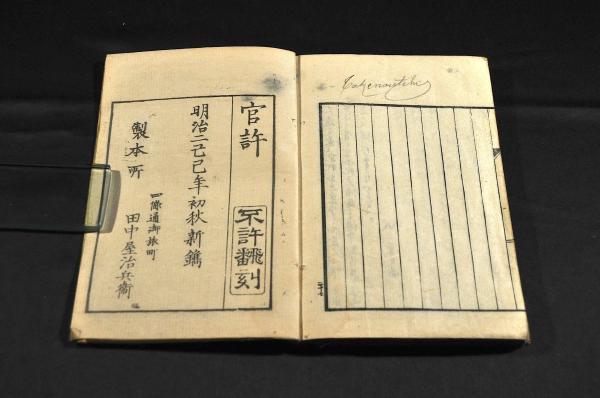 官許
不許翻刻
明治二己巳年初秋新鐫
製本所
四條通御旅町
田中屋治兵衛
Takenouchi